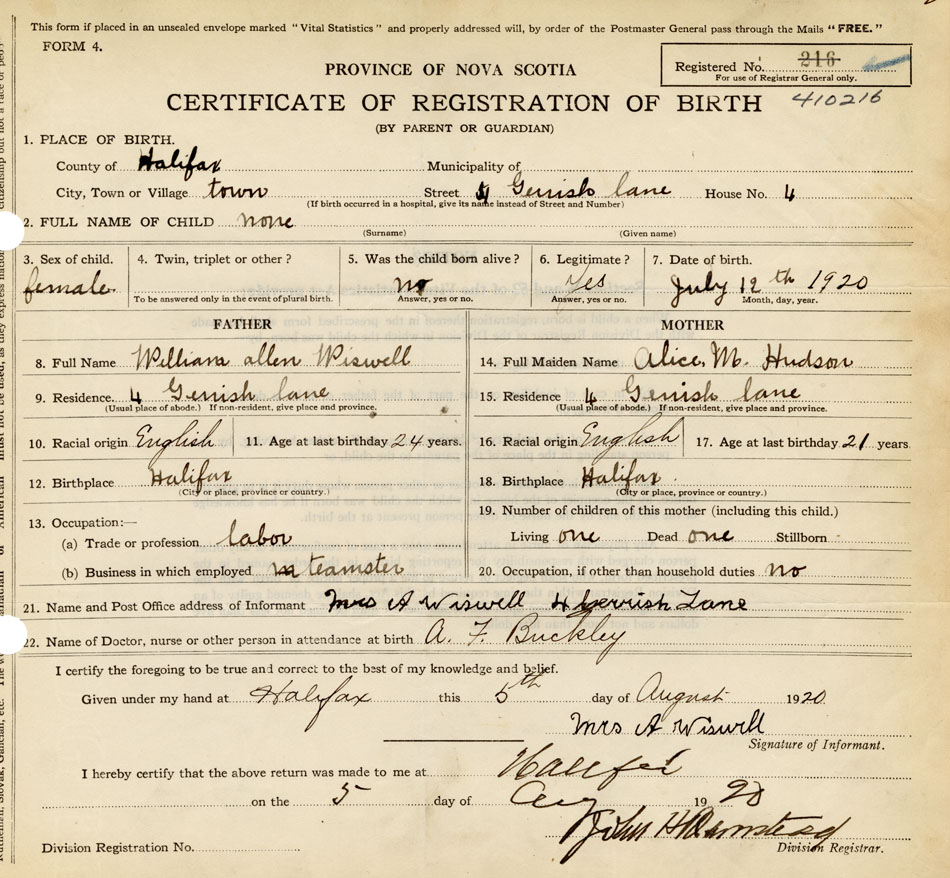 This form if placed in an unsealed envelope marked "Vital Statistics" and properly addressed will, by order of the Postmaster General pass through the Mails "FREE."
FORM 4.
Registered No. 216
For use of Registrar General only.
PROVINCE OF NOVA SCOTIA
CERTIFICATE OF REGISTRATION OF BIRTH 410216
(BY PARENT OR GUARDIAN)
1. PLACE OF BIRTH.
County of Halifax Municipality of
City, Town or Village town Street 4 Gerrish lane House No. 4
(If birth occurred in a hospital, give its name instead of Street and Number)
2. FULL NAME OF CHILD none
(Surname) (Given name)
3. Sex of child. 4. Twin, triplet or other? 5. Was the child born alive? 6. Legitimate? 7. Date of birth.
female no Yes July 12th 1920
To be answered only in the event of plural birth. Answer, yes or no. Answer, yes or no. Month, day, year.
FATHER
8. Full Name William allen Wiswell
9. Residence. 4 Gerrish lane
(Usual place of abode.) If non-resident, give place and province.
10. Racial origin English 11. Age at last birthday 24 years.
12. Birthplace Halifax
(City or place, province or country.)
13. Occupation:—
(a) Trade or profession labor
(b) Business in which employed teamster
MOTHER
14. Full Maiden Name Alice. M. Hudson
15. Residence 4 Gerrish lane
(Usual place of abode.) If non-resident, give place and province.
16. Racial origin English 17. Age at last birthday 21 years
18. Birthplace Halifax.
(City or place, province or country.)
19. Number of children of this mother (including this child.)
Living one Dead one Stillborn
20. Occupation, if other than household duties no
21. Name and Post Office address of Informant Mrs A Wiswell 4 Gerrish Lane
22. Name of Doctor, nurse or other person in attendance at birth A. F. Buckley
I certify the foregoing to be true and correct to the best of my knowledge and belief.
Given under my hand at Halifax this 5th day of August 1920
Mrs A Wiswell
Signature of Informant.
I hereby certify that the above return was made to me at Halifax
on the 5 day of Aug 1920
John H
Division Registrar.
Division Registration No.